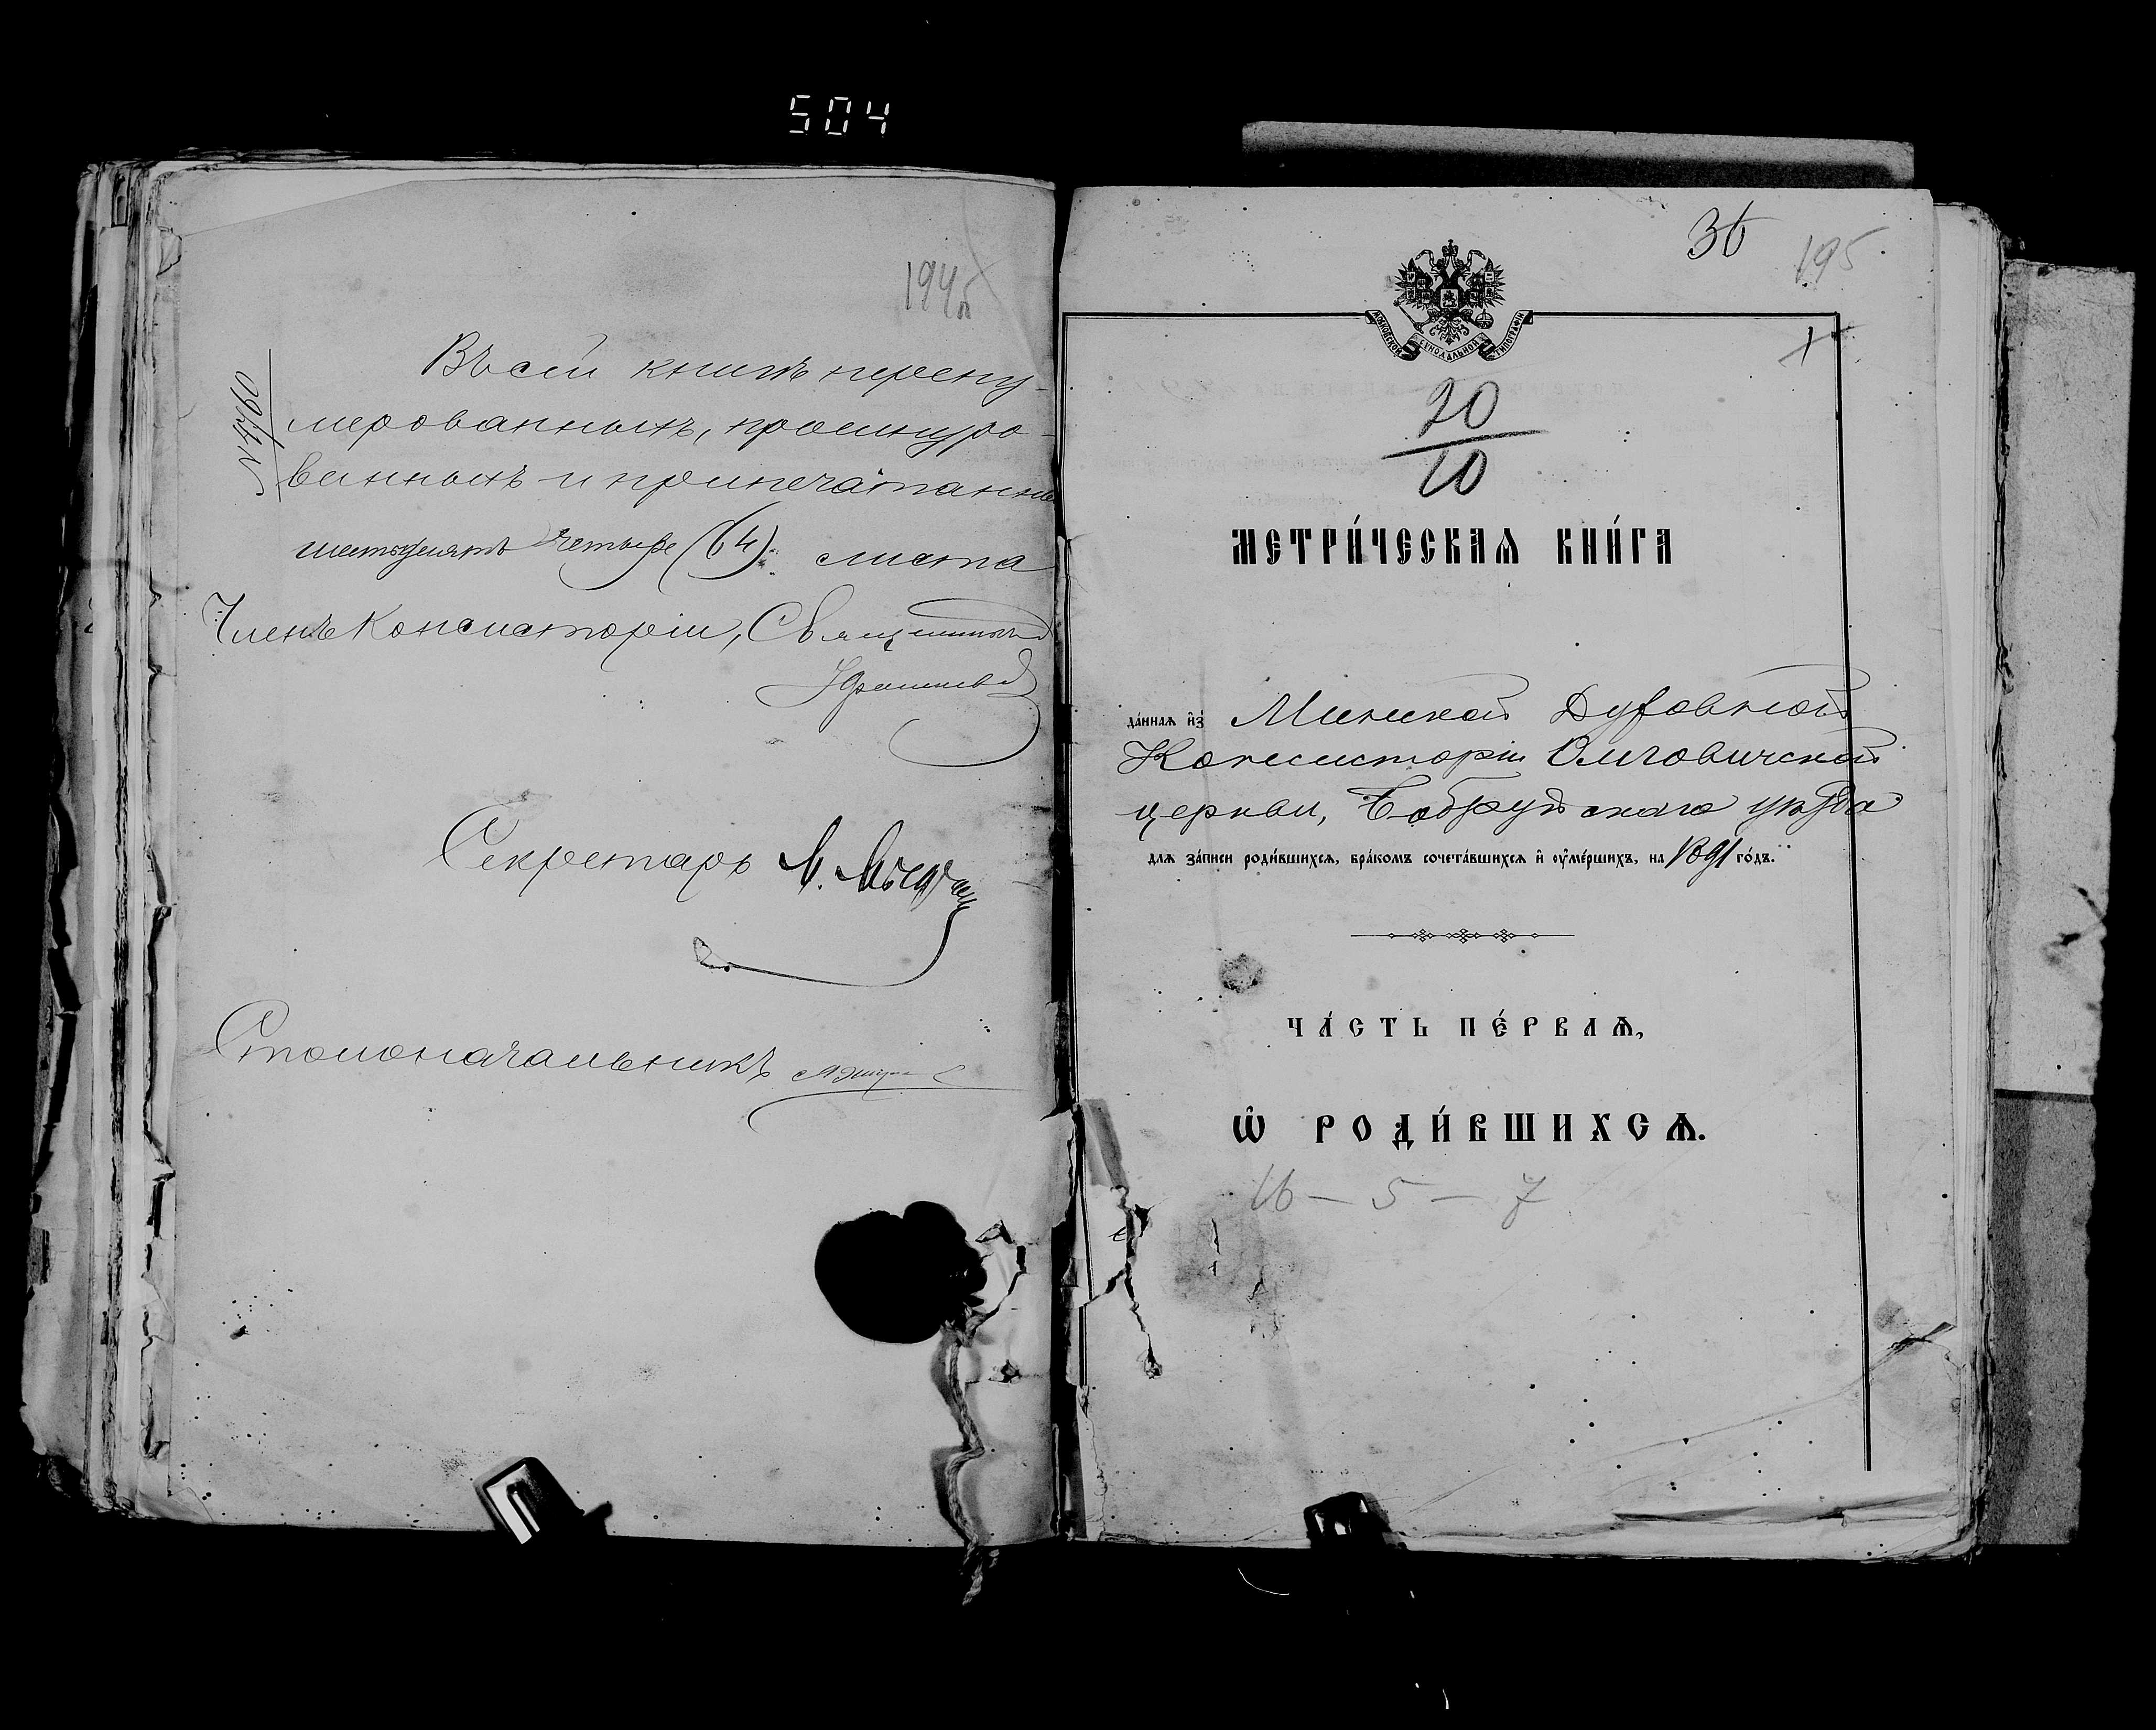 504
194об
№ 7760
Въ сей книгѣ перену-
мерованныхъ, прошнуро-
ванныхъ и припечатанныхъ
шестьдесятъ четыре (64) листа
Членъ Консисторіи, Священникъ
Секретарь
Столоначальникъ
36
195
МОСКОВСКОЙ СѴНОДАЛЬНОЙ ТИПОГРАФІИ
20
10
МЕТРИ́ЧЕСКАѦ КНИ́ГА
да́ннаѧ и҆з̾ Минской Духовной
Консисторіи Омговичской
церкви, Бобруйскаго уѣзда
длѧ за́писи роди́вшихсѧ, бра́комъ сочета́вшихсѧ и҆ ᲂу҆ме́ршихъ, на 1891 го́дъ.
ЧА́СТЬ ПЕ́РВАѦ,
Ѡ҆ РОДИ́ВШИХСѦ.
16 - 5 - 7